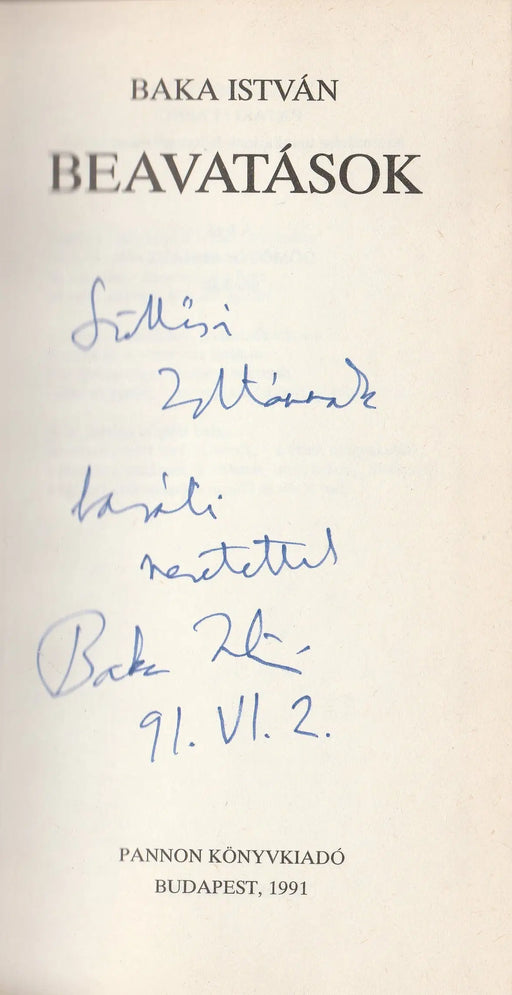 BAKA ISTVÁN
BEAVATÁSOK
Szöllősi
Zoltánnak
baráti
szeretettel
Baka István
91. VI. 2.
PANNON KÖNYVKIADÓ
BUDAPEST, 1991